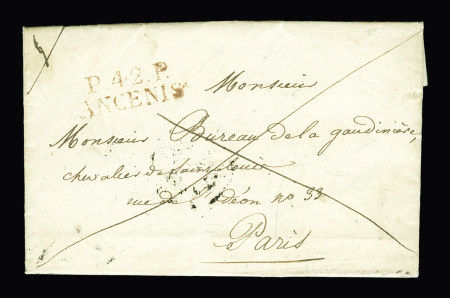 P.42.P.
ANCENIS
Monsieur
Monsieur Bureau de la gaudinière,
chevalier de Saint Louis
rue de l'odéon no. 33
Paris